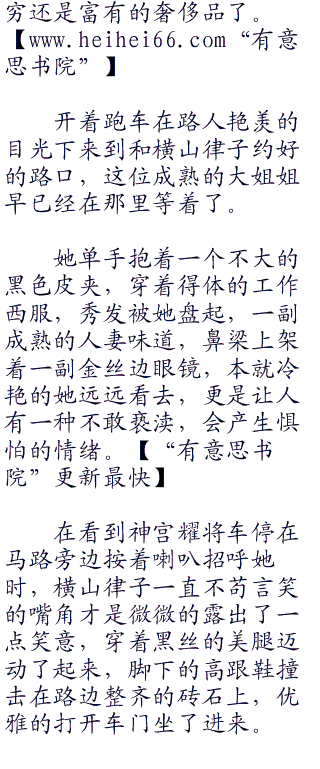 穷还是富有的奢侈品了。
【www.heihei66.com“有意
思书院”】
开着跑车在路人艳羡的
目光下来到和横山律子约好
的路口，这位成熟的大姐姐
早已经在那里等着了。
她单手抱着一个不大的
黑色皮夹，穿着得体的工作
西服，秀发被她盘起，一副
成熟的人妻味道，鼻梁上架
着一副金丝边眼镜，本就冷
艳的她远远看去，更是让人
有一种不敢亵渎，会产生惧
怕的情绪。【“有意思书
院”更新最快】
在看到神宫耀将车停在
马路旁边按着喇叭招呼她
时，横山律子一直不苟言笑
的嘴角才是微微的露出了一
点笑意，穿着黑丝的美腿迈
动了起来，脚下的高跟鞋撞
击在路边整齐的砖石上，优
雅的打开车门坐了进来。